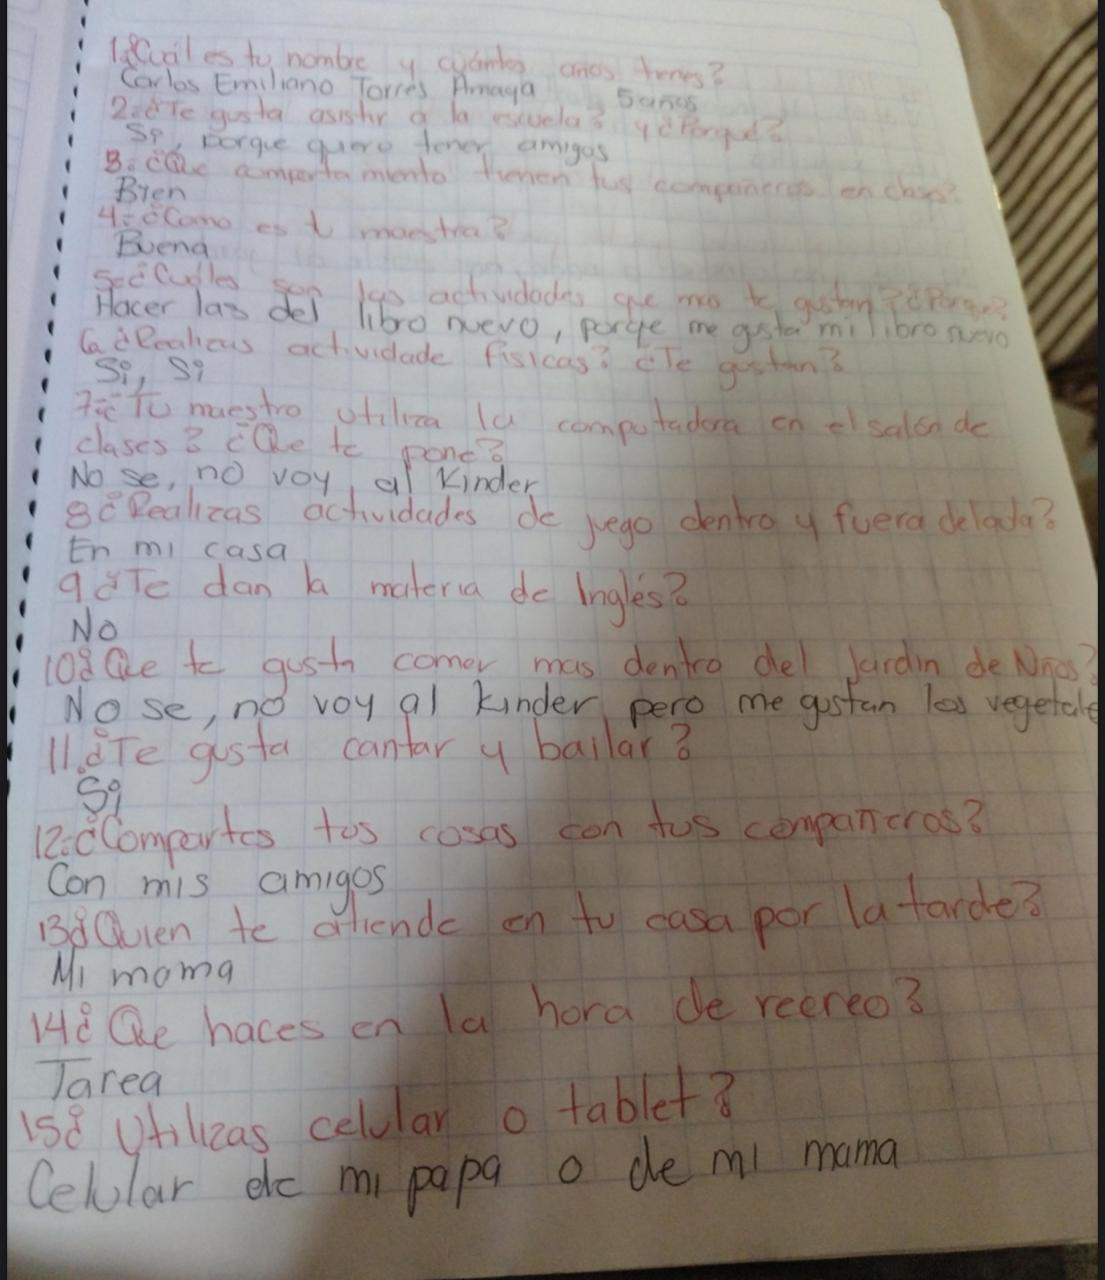 1.¿Cuál es tu nombre y cuántos años tienes?
Carlos Emiliano Torres Amaya 5 años
2.¿Te gusta asistir a la escuela? y ¿Porque?
Si, porque quiero tener amigos
3.¿Que comportamiento tienen tus compañeros en clase?
Bien
4.-¿Como es t maestra?
Buena
5.-¿Cuáles son las actividades que mas te gustan? ¿Porque?
Hacer las del libro nuevo, porqe me gusta mi libro nuevo
6.¿Realicas actividade físicas? ¿Te gustan?
Si, Si
7.-¿Tu maestro utiliza la computadora en el salón de
clases? ¿Que te pone?
No se, no voy al Kinder
8¿Realizas actividades de juego dentro y fuera del aula?
En mi casa
9¿Te dan la materia de Inglés?
No
10¿Que te gusta comer mas dentro del Jardin de Niños?
No se, no voy al kinder pero me gustan los vegetale
11.¿Te gusta cantar y bailar?
Si
12.¿Compartes tus cosas con tus compañeros?
Con mis amigos
13¿Quien te atiende en tu casa por la tarde?
Mi mama
14¿Que haces en la hora de recreo?
Tarea
15¿Utilizas celular o tablet?
Celular de mi papa o de mi mama